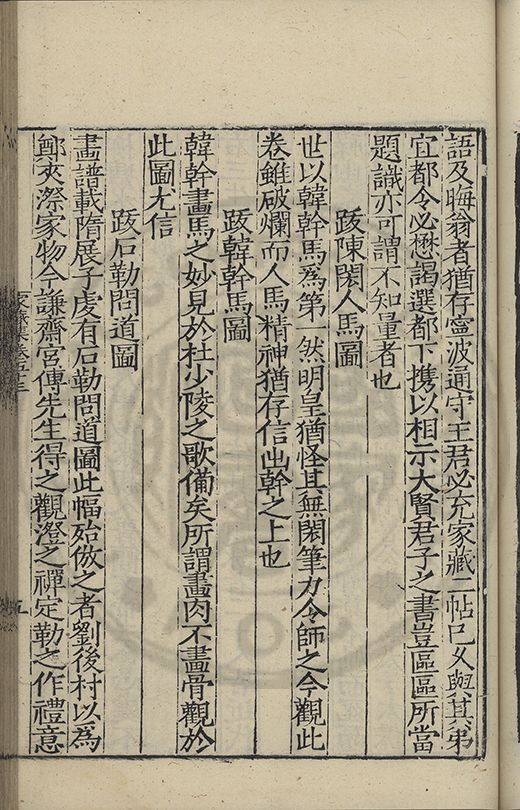 語及晦翁者猶存寧波通守王君必充家藏二帖已又與其弟
宜都令必懋謁選都下携以相示大賢君子之書豈區區所當
題識亦可謂不知量者也
跋陳閎人馬圖
世以韓幹馬爲第一然明皇猶怪其無閎筆力令師之今觀此
卷雖破爛而人馬精神猶存信出幹之上也
跋韓幹馬圖
韓幹畫馬之妙見於杜少陵之歌備矣所謂畫肉不畫骨觀於
此圖尤信
跋石勒問道圖
畫譜載隋展子虔有石勒問道圖此幅殆倣之者劉後村以爲
鄭夾漈家物今謙齋宮傅先生得之觀澄之禪定勒之作禮意
五